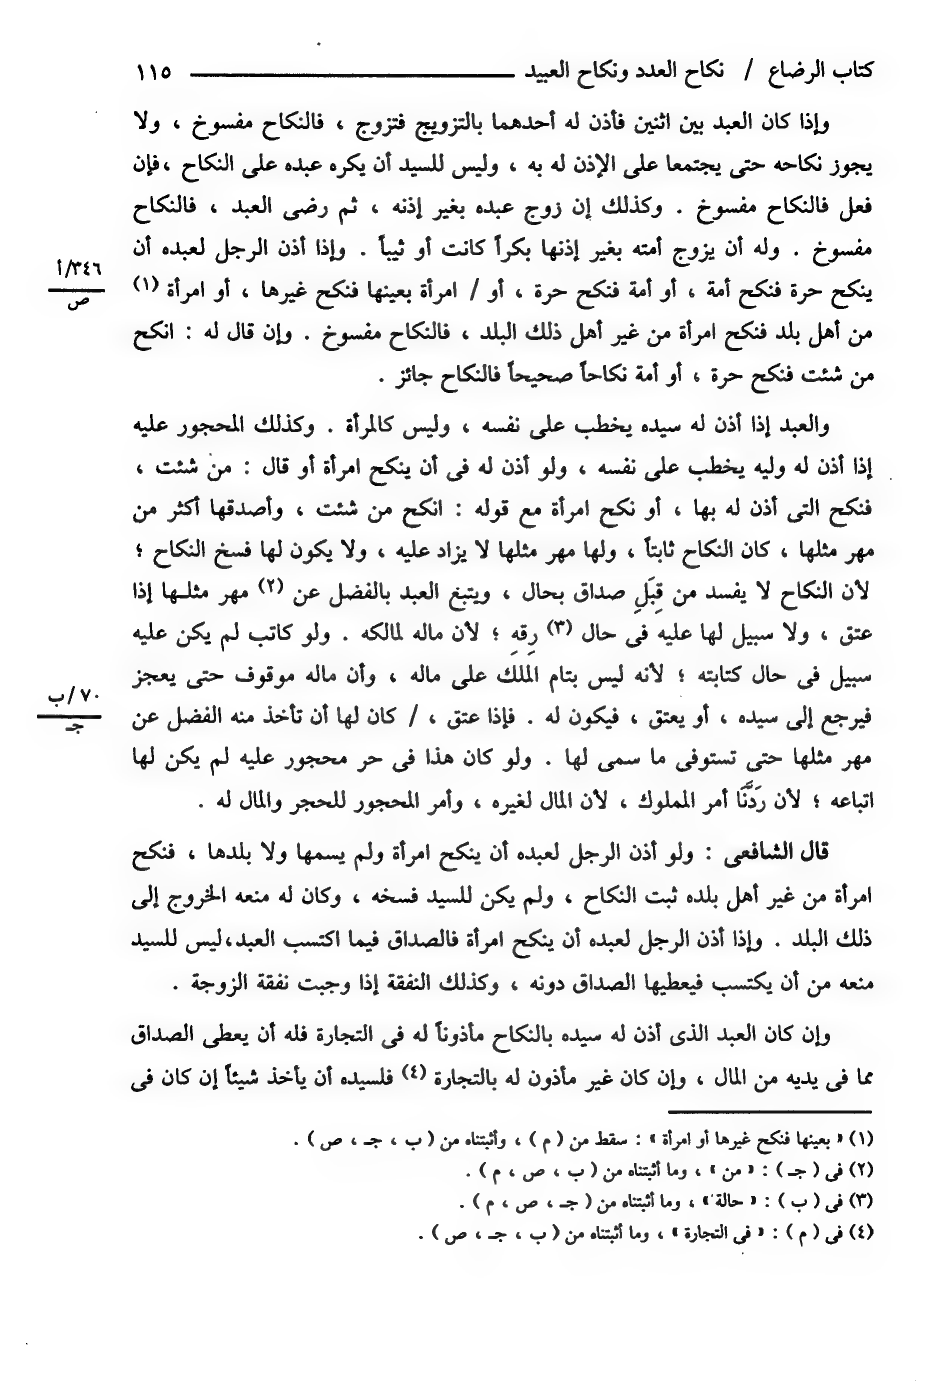 كتاب الرضاع / نكاح العدد ونكاح العبيد ١١٥
وإذا كان العبد بين اثنين فأذن له أحدهما بالتزويج فتزوج ، فالنكاح مفسوخ ، ولا
يجوز نكاحه حتى يجتمعا على الإذن له به ، وليس للسيد أن يكره عبده على النكاح ،فإن
فعل فالنكاح مفسوخ . وكذلك إن زوج عبده بغير إذنه ، ثم رضى العبد ، فالنكاح
مفسوخ . وله أن يزوج أمته بغير إذنها بكراً كانت أو ثيباً . وإذا أذن الرجل لعبده أن
ينكح حرة فنكح أمة ، أو أمة فنكح حرة ، أو / امرأة بعينها فنكح غيرها ، أو امرأة (١)
٣٤٦/أ
ص
من أهل بلد فنكح امرأة من غير أهل ذلك البلد ، فالنكاح مفسوخ . وإن قال له : انكح
من شئت فنكح حرة ، أو أمة نكاحاً صحيحاً فالنكاح جائز .
والعبد إذا أذن له سيده يخطب على نفسه ، وليس كالمرأة . وكذلك المحجور عليه
إذا أذن له وليه يخطب على نفسه ، ولو أذن له فى أن ينكح امرأة أو قال : من شئت ،
فنكح التى أذن له بها ، أو نكح امرأة مع قوله : انكح من شئت ، وأصدقها أكثر من
مهر مثلها ، كان النكاح ثابتاً ، ولها مهر مثلها لا يزاد عليه ، ولا يكون لها فسخ النكاح ؛
لأن النكاح لا يفسد من قِبَلِ صداق بحال ، ويتبع العبد بالفضل عن (٢) مهر مثلـها إذا
عتق ، ولا سبيل لها عليه فى حال (٣) رِقِهِ ؛ لأن ماله لمالكه . ولو كاتب لم يكن عليه
سبيل فى حال كتابته ؛ لأنه ليس بتام الملك على ماله ، وأن ماله موقوف حتى يعجز
فيرجع إلى سيده ، أو يعتق ، فيكون له . فإذا عتق ، / كان لها أن تأخذ منه الفضل عن
٧٠/ب
جـ
مهر مثلها حتى تستوفى ما سمى لها . ولو كان هذا فى حر محجور عليه لم يكن لها
اتباعه ؛ لأن رَدَّنَا أمر المملوك ، لأن المال لغيره ، وأمر المحجور للحجر والمال له .
قال الشافعى : ولو أذن الرجل لعبده أن ينكح امرأة ولم يسمها ولا بلدها ، فنكح
امرأة من غير أهل بلده ثبت النكاح ، ولم يكن للسيد فسخه ، وكان له منعه الخروج إلى
ذلك البلد . وإذا أذن الرجل لعبده أن ينكح امرأة فالصداق فيما اكتسب العبد،ليس للسيد
منعه من أن يكتسب فيعطيها الصداق دونه ، وكذلك النفقة إذا وجبت نفقة الزوجة .
وإن كان العبد الذى أذن له سيده بالنكاح مأذوناً له فى التجارة فله أن يعطى الصداق
مما فى يديه من المال ، وإن كان غير مأذون له بالتجارة (٤) فلسيده أن يأخذ شيئاً إن كان فى
(١) « بعينها فنكح غيرها أو امرأة » : سقط من ( م ) ، وأثبتناه من ( ب ، جـ ، ص ) .
(٢) فى ( جـ ) : « من » ، وما أثبتناه من ( ب ، ص ، م ) .
(٣) فى ( ب ) : « حالة » ، وما أثبتناه من ( جـ ، ص ، م ) .
(٤) فى ( م ) : « فى التجارة » ، وما أثبتناه من ( ب ، جـ ، ص ) .